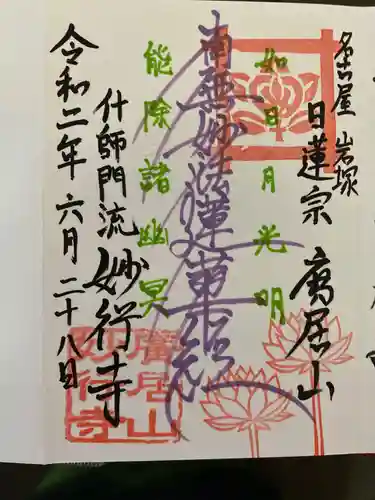 名古屋 岩塚
日蓮宗 廣居山
如日月光明
南無妙法蓮華経
能除諸幽冥
什師門流 妙行寺
令和二年六月二十八日
廣居山
妙行寺